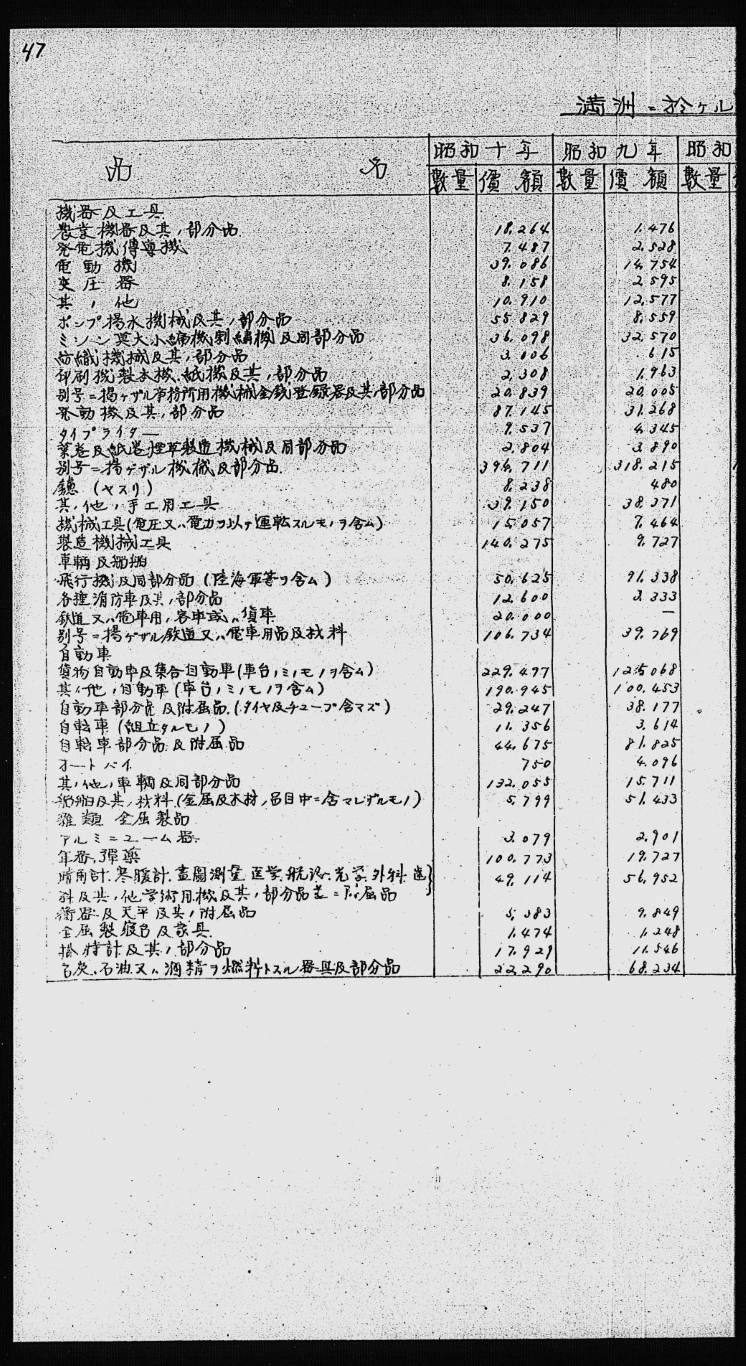 47
満洲ニ於ケル
品 名 昭和十年 昭和九年 昭和
數量 價額 數量 價額 數量
機器及工具
農業機器及其ノ部分品 18.264 1.476
発電機傳導機 7.487 2.528
電動機 39.086 14.754
変圧器 8.158 2.595
其ノ他 10.910 12.577
ポンプ揚水機械及其ノ部分品 55.829 8.559
ミシン 機 及同部分品 36.098 32.570
紡織機械及其ノ部分品 3.006 615
印刷機製本機、紙機及其ノ部分品 2.308 1.963
別号ニ揚ゲザル事務所用機械金銭登録器及其ノ部分品 20.839 20.005
発動機及其ノ部分品 87.145 31.268
タイプライター 9.537 4.345
葉巻及紙巻煙草製造機械及同部分品 2.804 3.890
別号ニ揚ゲザル機械及部分品 394.711 318.215
鑢(ヤスリ) 8.238 480
其ノ他ノ手工用工具 39.150 38.371
機械工具(電圧又ハ電力ヲ以テ運転スルモノヲ含ム) 15.057 7.464
製造機械工具 140.275 9.727
車輌及船舶
飛行機及同部分品(陸海軍 ヲ含ム) 50.625 91.338
各種消防車及其ノ部分品 12.600 3.333
鉄道又ハ電車用、客車或ハ貨車 20.000 —
別号ニ揚ゲザル鉄道又ハ電車用品及材料 106.734 39.769
自動車
貨物自動車及集合自動車(車台ノミノモノヲ含ム) 229.497 125.068
其ノ他ノ自動車(車台ノミノモノヲ含ム) 190.945 100.453
自動車部分品及附属品(タイヤ及チューブ含マズ) 29.247 38.177
自転車(組立タルモノ) 11.356 3.614
自転車部分品及附属品 44.675 81.825
オートバイ 750 4.096
其ノ他ノ車輌及同部分品 132.055 15.711
船舶及其ノ材料(金属及木材ノ品目中ニ含マレザルモノ) 5.799 51.433
雑類 金属製品
アルミニューム器 3.079 2.901
軍器、弾薬 100.773 19.727
晴雨計、寒暖計、畫圖測量、医学、航海、光学、外科、 49.114 56.952
料及其ノ他学術用機及其ノ部分品 附属品
衡器及天平及其ノ附属品 5.383 9.849
金属製 及家具 1.474 1.248
掛時計及其ノ部分品 17.929 11.546
石炭、石油又ハ酒精ヲ燃料トスル器具及部分品 22.290 68.234